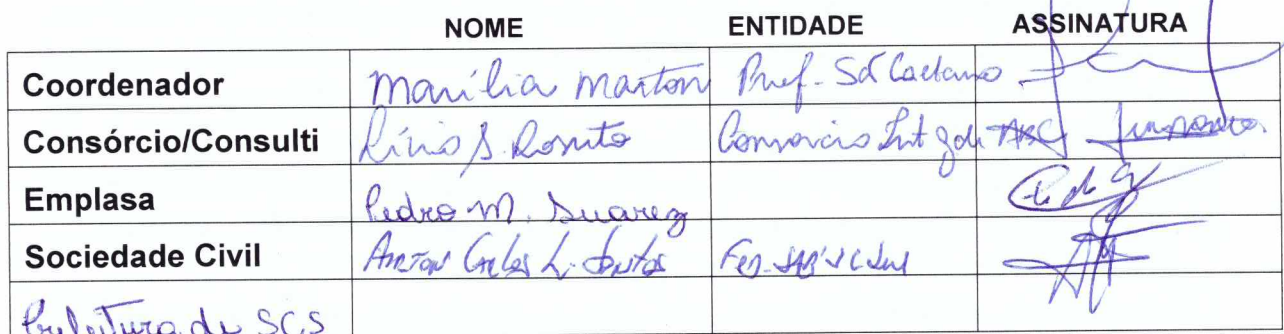 NOME ENTIDADE ASSINATURA
Coordenador Marília Marton Pref - São Caetano
Consórcio/Consulti S. Consorcio Int
Emplasa Pedro M. Suarez
Sociedade Civil Airton Carlos L. Santos
Prefeitura de SCS